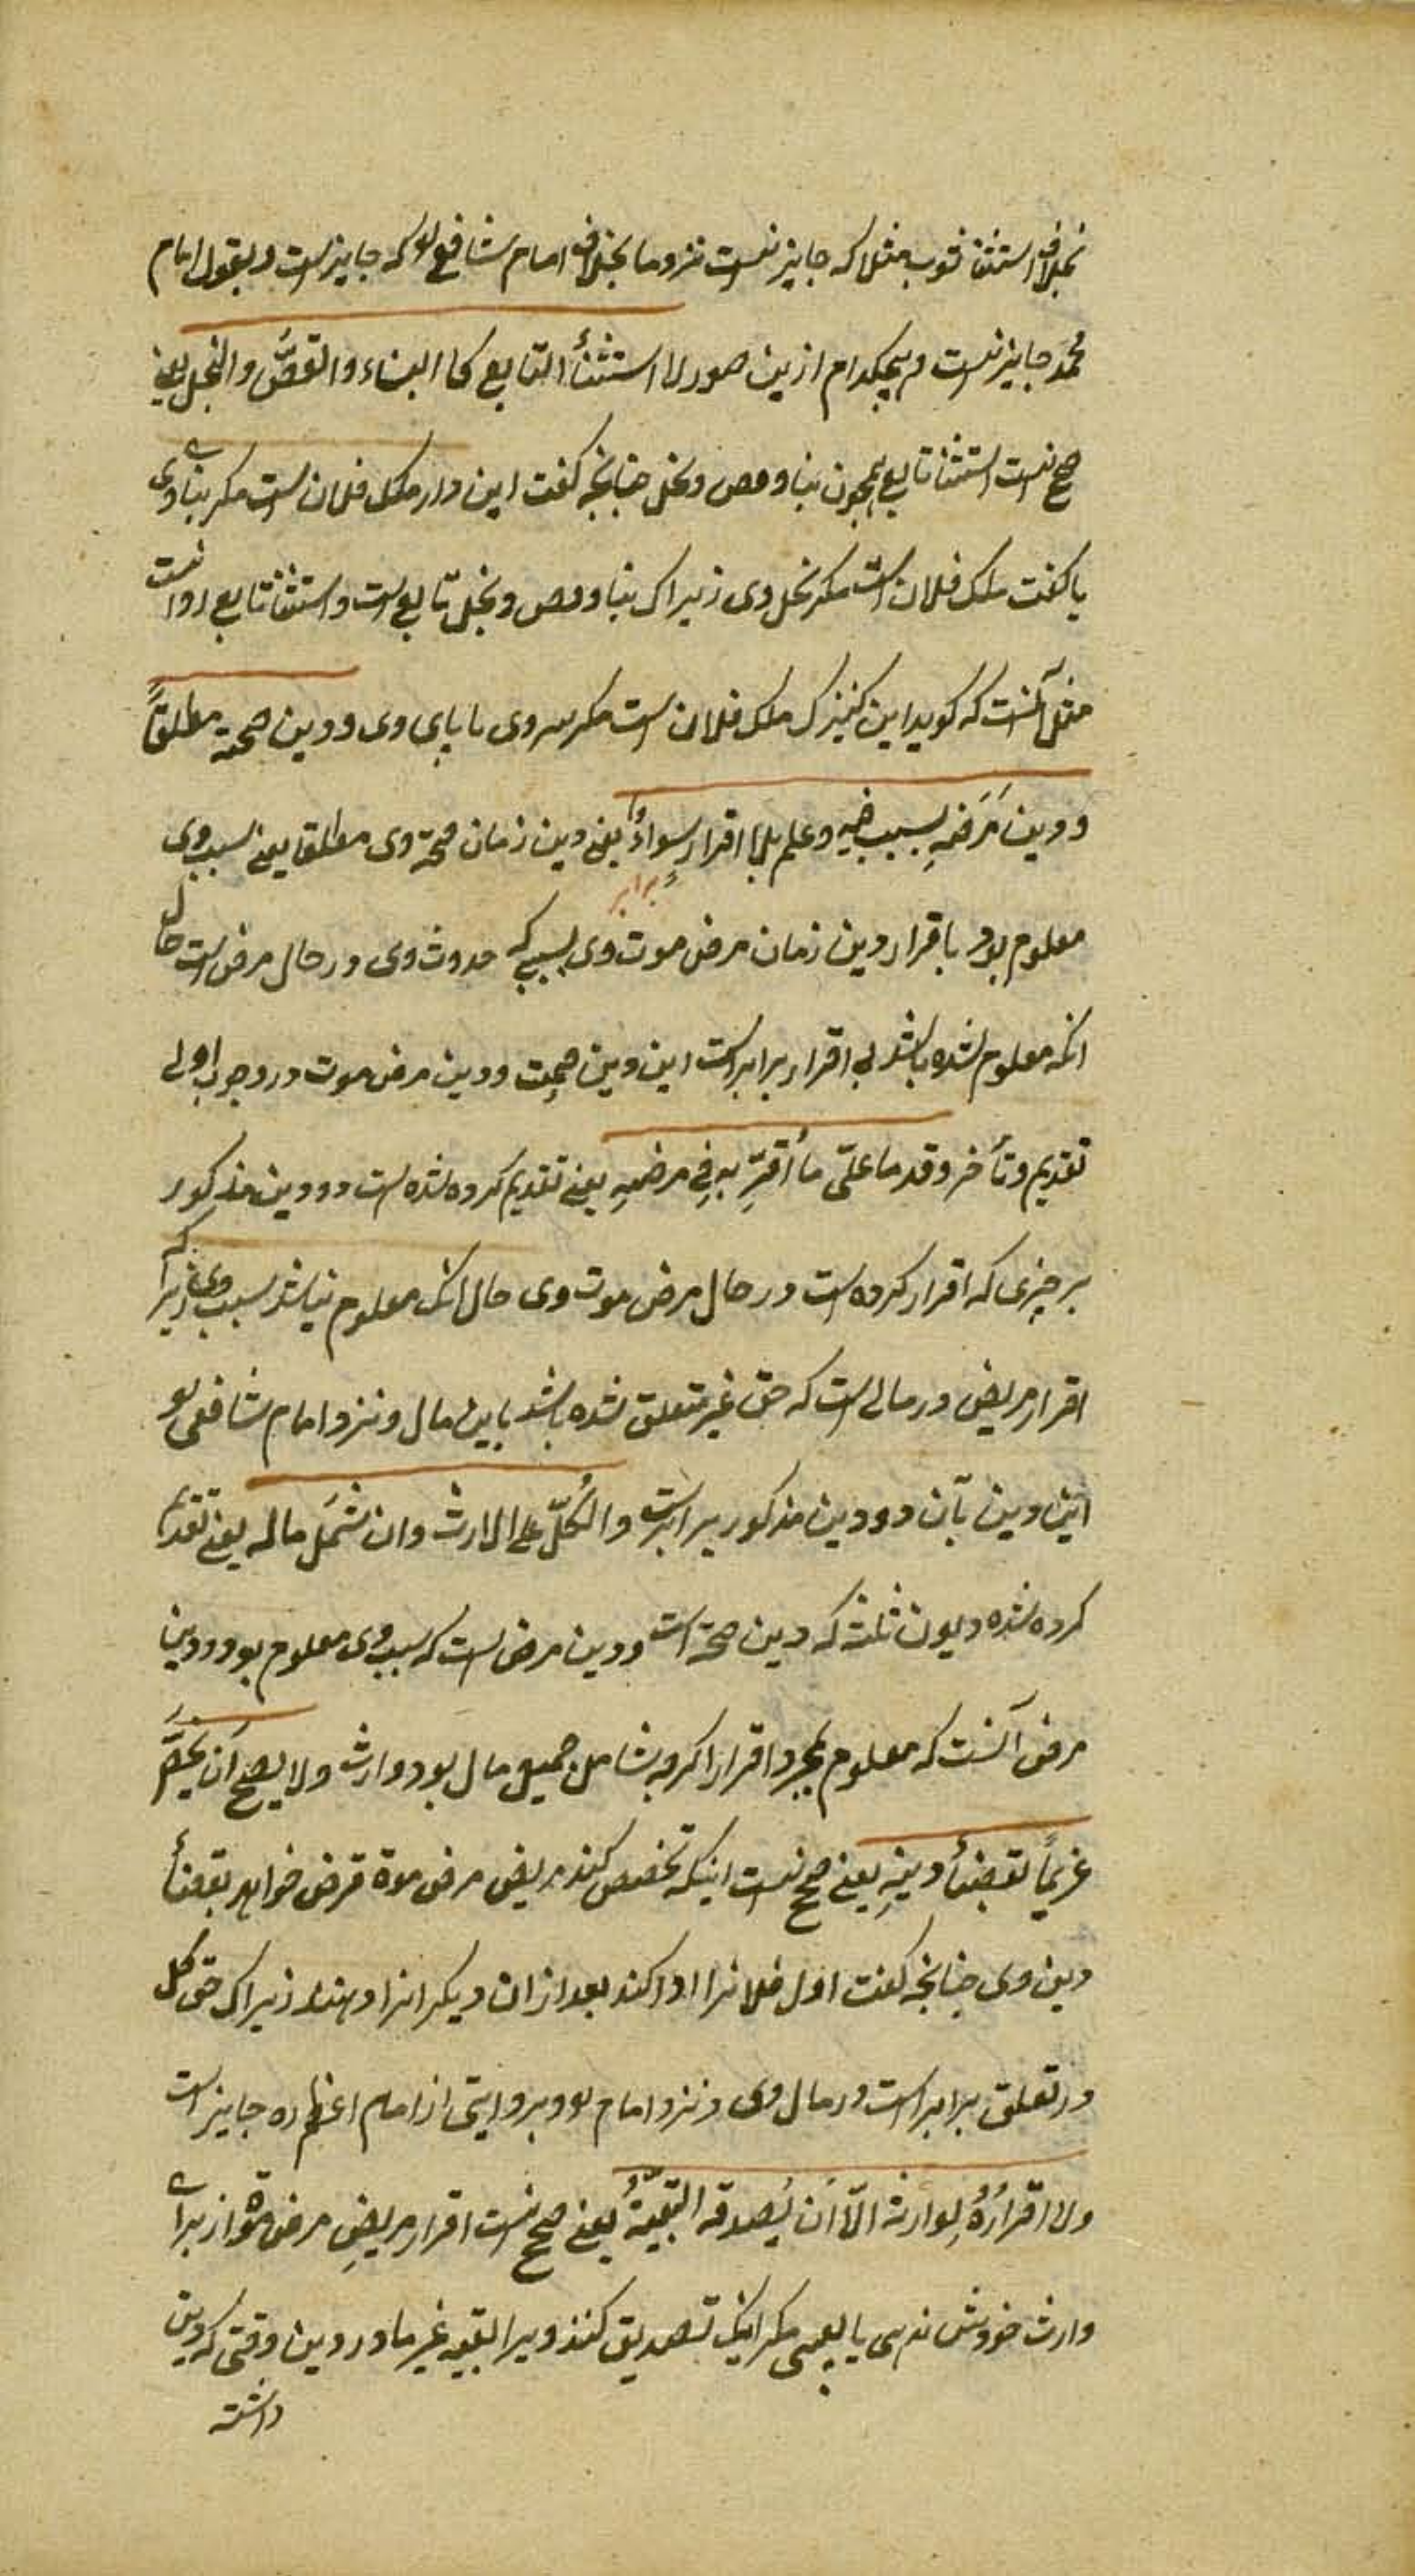 بخلاف استثنا ثوب مثلا که جایز نیست نزد ما بخلاف امام شافعی که جایز است و بقول امام
محمد جایز نیست هیچکدام ازین صور را استثنأ التابع کا البناء والفصّ والنخل یعنی
صحیح نیست استثنا تابع همچون بنا و فص و نخل چنانچه کفت این دار ملک فلان است مکر بنای وی
یا کفت ملک فلان است مکر نخل وی زیراک بنا و فص و نخل تابع است و استثنا تابع روا نیست
مثل آنست که کوید این کنیزک ملک فلان است مکر سر وی یا پای وی و دین صحته مطلقاً
و دین مَرَضِهِ بسبب فیه و علم بلا اقرارٍ سواءٌ یعنی دین زمان صحة وی مطلقا یعنی سبب وی
برابر
معلوم بود باقرار و دین زمان مرض موت وی بسببی که حدوث وی در حال مرض است حال
انکه معلوم شده باشد بی اقرار برابر است این دین صحت و دین مرض موت در وجوب اولی
تقدیم و تأخر و قدما علی ما أقرّ به فی مرضه یعنی تقدیم کرده شده است دو دین مذکور
بر چیزی که اقرار کرده است در حال مرض موت وی حال انک معلوم نباشد سبب وی زیرا که
اقرار مریض در مالی است که حق غیر متعلق نشده باشد باین مال و نزد امام شافعی
این دین بآن دو دین مذکور برابر است والکُلّ علی الارث وان شَمَل ماله یعنی تقدیم
کرده شده دیون ثلثه که دین صحة است و دین مرض است که سبب وی معلوم بود و دین
مرض آنست که معلوم بمجرد اقرار اکرچه شامل جمیع مال بود وارث ولا یصح أن یخصّ
غریماً بقضأ دینِهِ یعنی صحیح نیست اینکه تخصیص کند مریض مرض موة قرض خواهر بقضأ
دین وی چنانچه کفت اول فلانرا ادا کند بعد ازان دیکرانرا دهند زیراک حق کل
در تعلق برابر است در مال وی و نزد امام و بروایتی از امام اعظم ره جایز است
ولا اقرارُهُ لِوارثه الّا أن یُصدقه البقیةُ یعنی صحیح نیست اقرار مریضِ مرض موة از برای
وارث خودش مکر انیک تصدیق کنند ویرا بقیه غیر ما در دین وقتی که دین
داشته